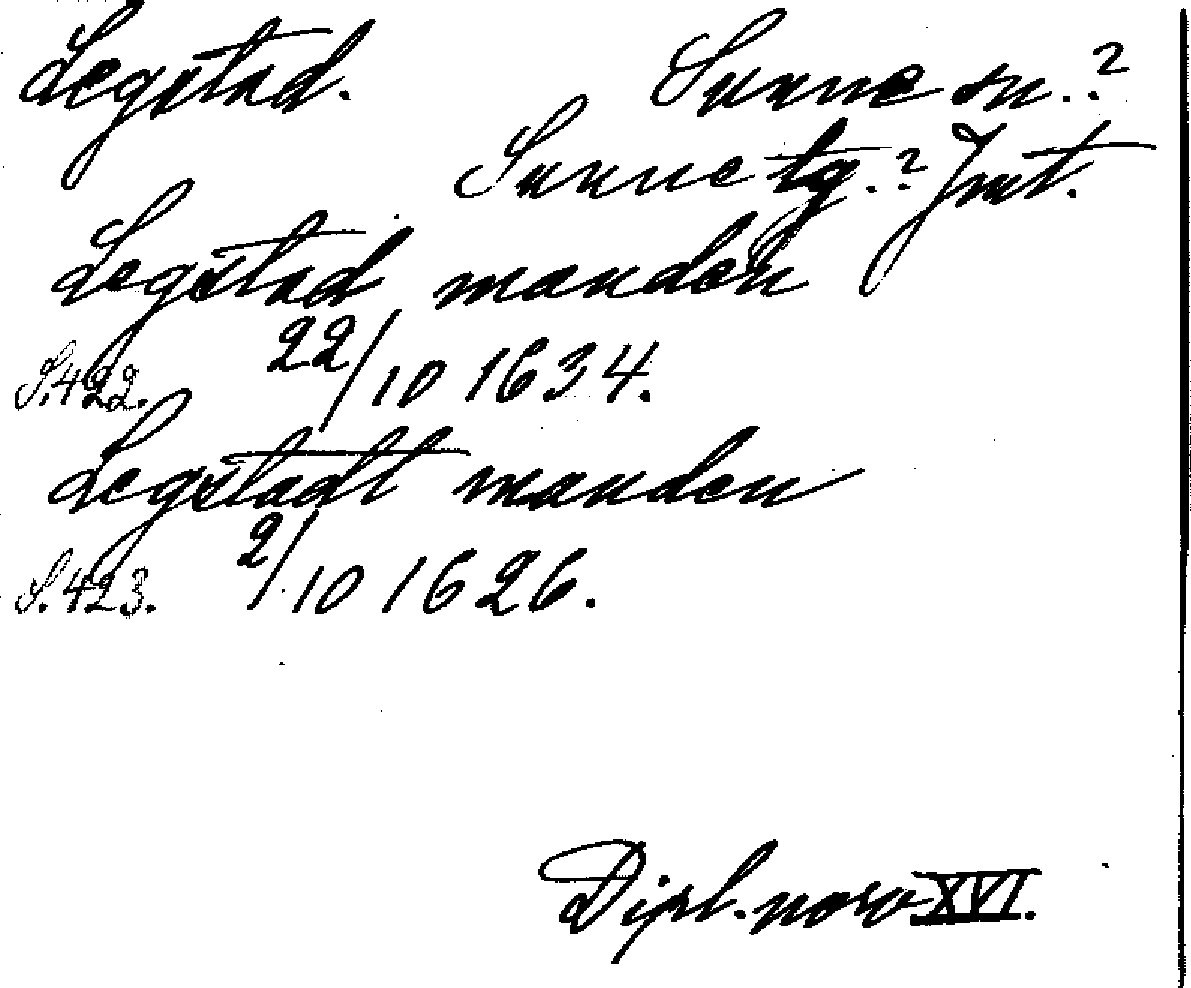 Legstad. Sunne sn.?
Sunne tg.? Jmt.
Legstad manden
S.422. 22/10 1634.
Legstadt manden
S.423. 2/10 1626.
Dipl. norv XVI.